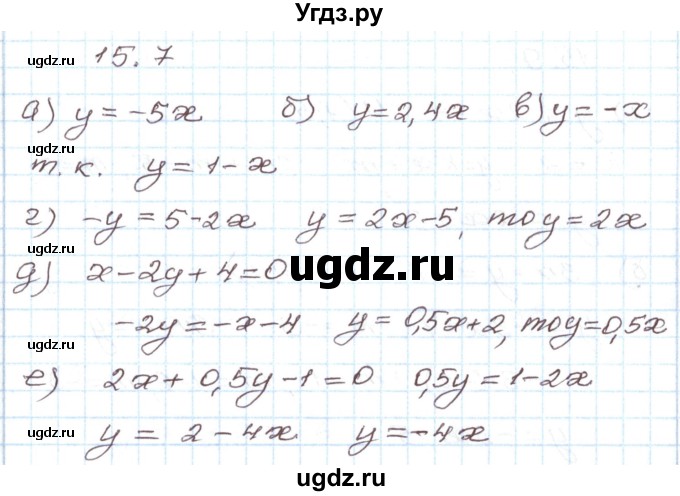 Угдз.ру
ugdz.ru ugdz.ru
15.7
а) y = -5x б) y = 2,4x в) y = -x
ugdz.ru ugdz.ru
т.к. y = 1 - x
г) -y = 5 - 2x y = 2x - 5, то y = 2x
ugdz.ru ugdz.ru
ugdz.ru
д) x - 2y + 4 = 0
-2y = -x - 4 y = 0,5x + 2, то y = 0,5x
ugdz.ru ugdz.ru
е) 2x + 0,5y - 1 = 0 0,5y = 1 - 2x
y = 2 - 4x y = -4x
ugdz.ru ugdz.ru
ugdz.ru